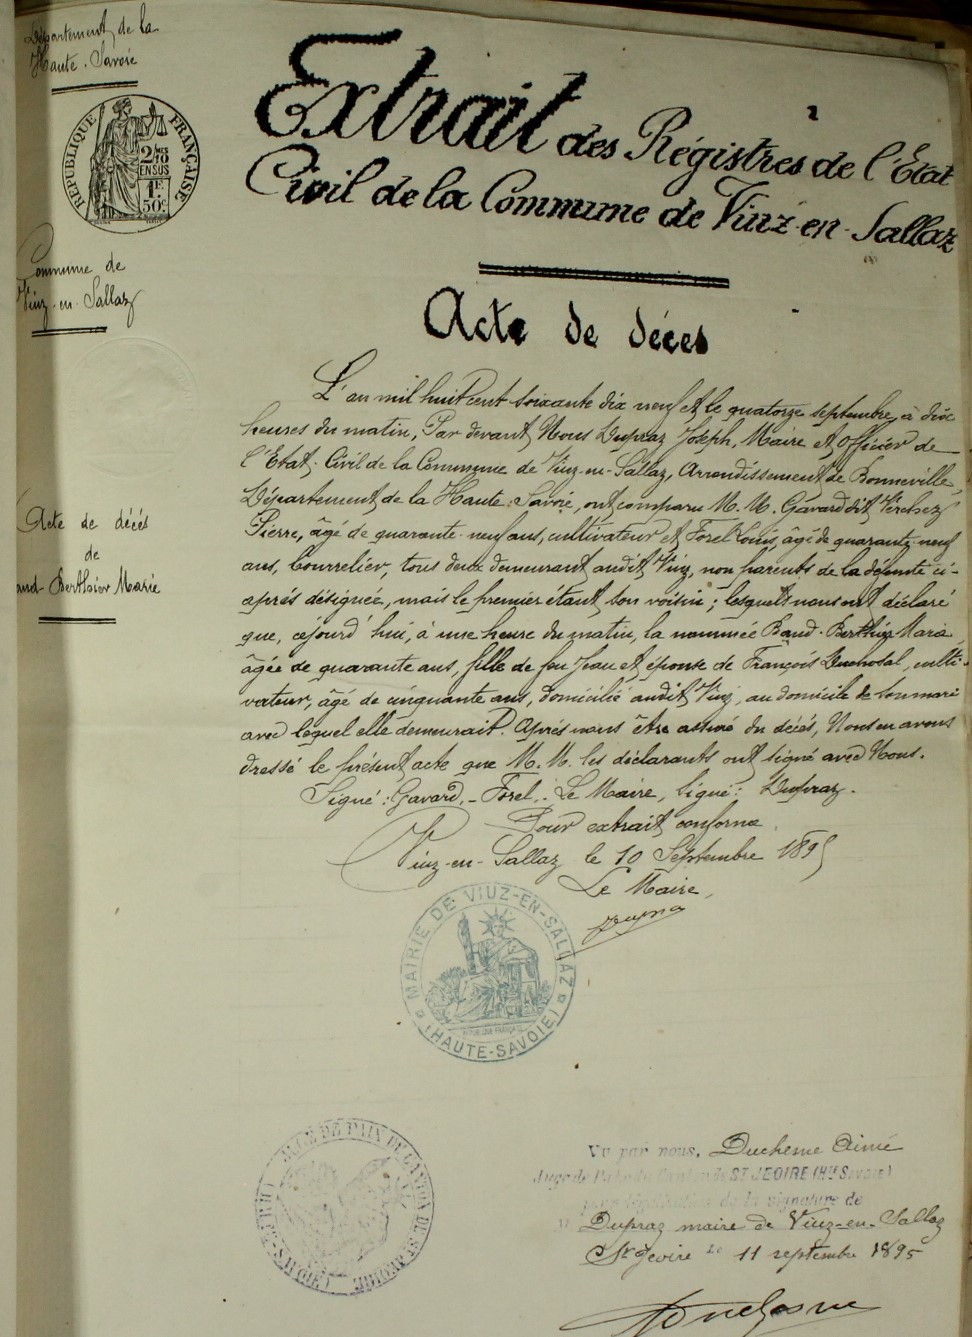 Département de la
Haute-Savoie
RÉPUBLIQUE FRANÇAISE
2/10
EN SUS
1F
50c
Commune de
Viuz-en-Sallaz
Acte de décés
de
Baud-Berthier Marie
Extrait des Régistres de l'État
Civil de la Commune de Viuz-en-Sallaz
Acte de décès
L'an mil huit cent soixante dix neuf et le quatorze septembre, à dix
heures du matin, Par devant Nous Dupraz Joseph, Maire et Officier de
l'Etat-Civil de la Commune de Viuz-en-Sallaz, Arrondissement de Bonneville,
Département de la Haute-Savoie, ont comparu M.M. Gavard dit Verchez
Pierre, âgé de quarante-neuf ans, cultivateur et Forel Louis, âgé de quarante-neuf
ans, bourrelier, tous deux demeurant audit Viuz, non parents de la défunte ci-
après désignée, mais le premier étant son voisin; lesquels nous ont déclaré
que, cejourd'hui, à une heure du matin, la nommée Baud-Berthier Marie
âgée de quarante ans, fille de feu Jean et épouse de François, culti-
vateur, âgé de cinquante ans, domicilié audit Viuz, au domicile de son mari
avec lequel elle demeurait. Après nous être assuré du décès, Nous en avons
dressé le présent acte que M.M. les déclarants ont signé avec Nous.
Signé: Gavard, - Forel, - Le Maire, Signé: Dupraz.
Pour extrait conforme
Viuz-en-Sallaz le 10 Septembre 1895
Le Maire,
Dupraz
MAIRIE DE VIUZ-EN-SALLAZ
(HAUTE-SAVOIE)
JUGE DE PAIX DU CANTON DE ST-JEOIRE
Vu par nous, Duchesne Aimé
Juge de Paix du Canton de ST JEOIRE (Hte SAVOIE)
pour légalisation de la signature de
Dupraz maire de Viuz-en-Sallaz
St Jeoire le 11 septembre 1895
Duchesne